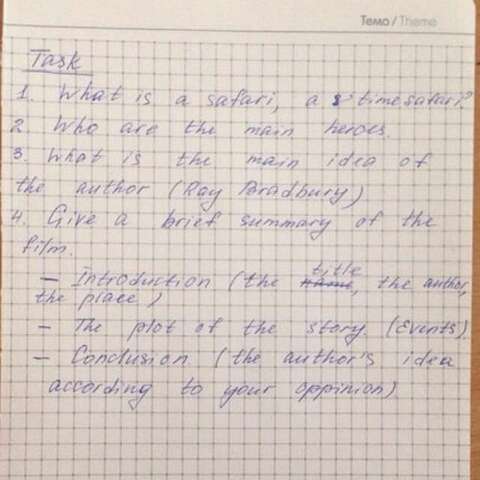 Тема / Theme
Task
1. What is a safari, a time safari?
2. Who are the main heroes.
3. What is the main idea of
the author (Ray Bradbury)
4. Give a brief summary of the
film.
– Introduction (the title, the author,
the place)
– The plot of the story. (Events).
– Conclusion. (the author's idea
according to your oppinion)